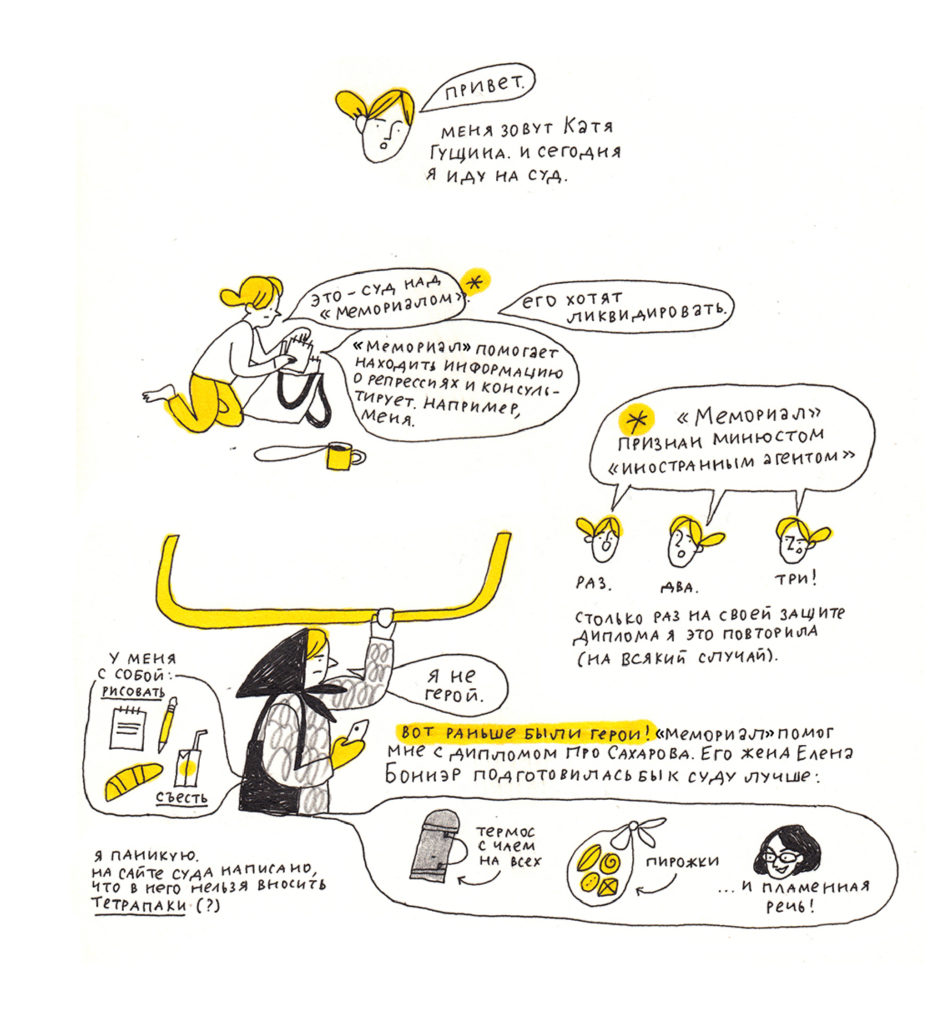 Привет.
меня зовут Катя
Гущина. и сегодня
я иду на суд.
это – суд над
«Мемориалом». *
его хотят
ликвидировать.
«Мемориал» помогает
находить информацию
о репрессиях и консуль-
тирует. Например,
меня.
* «Мемориал»
признан минюстом
«иностранным агентом»
раз.
два.
три!
столько раз на своей защите
диплома я это повторила
(на всякий случай).
у меня
с собой:
рисовать
съесть
я не
герой.
вот раньше были герои! «Мемориал» помог
мне с дипломом про Сахарова. Его жена Елена
Боннэр подготовилась бы к суду лучше:
термос
с чаем
на всех
пирожки
... и пламенная
речь!
я паникую.
на сайте суда написано,
что в него нельзя вносить
тетрапаки (?)